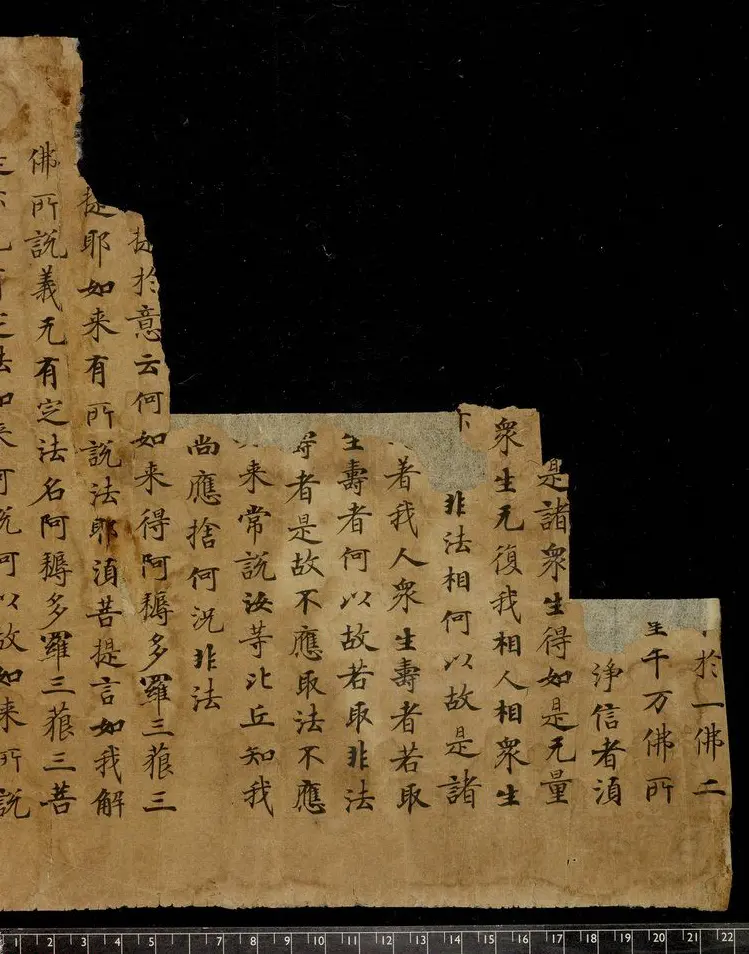 於一佛二
千万佛所
淨信者須
是諸衆生得如是无量
衆生无復我相人相衆生
非法相何以故是諸
著我人衆生壽者若取
生壽者何以故若取非法
者是故不應取法不應
来常說汝等比丘知我
尚應捨何況非法
提於意云何如来得阿耨多羅三藐三
提耶如来有所說法耶須菩提言如我解
佛所說義无有定法名阿耨多羅三藐三菩
定法如来可說何以故如来所說
1 2 3 4 5 6 7 8 9 10 11 12 13 14 15 16 17 18 19 20 21 22